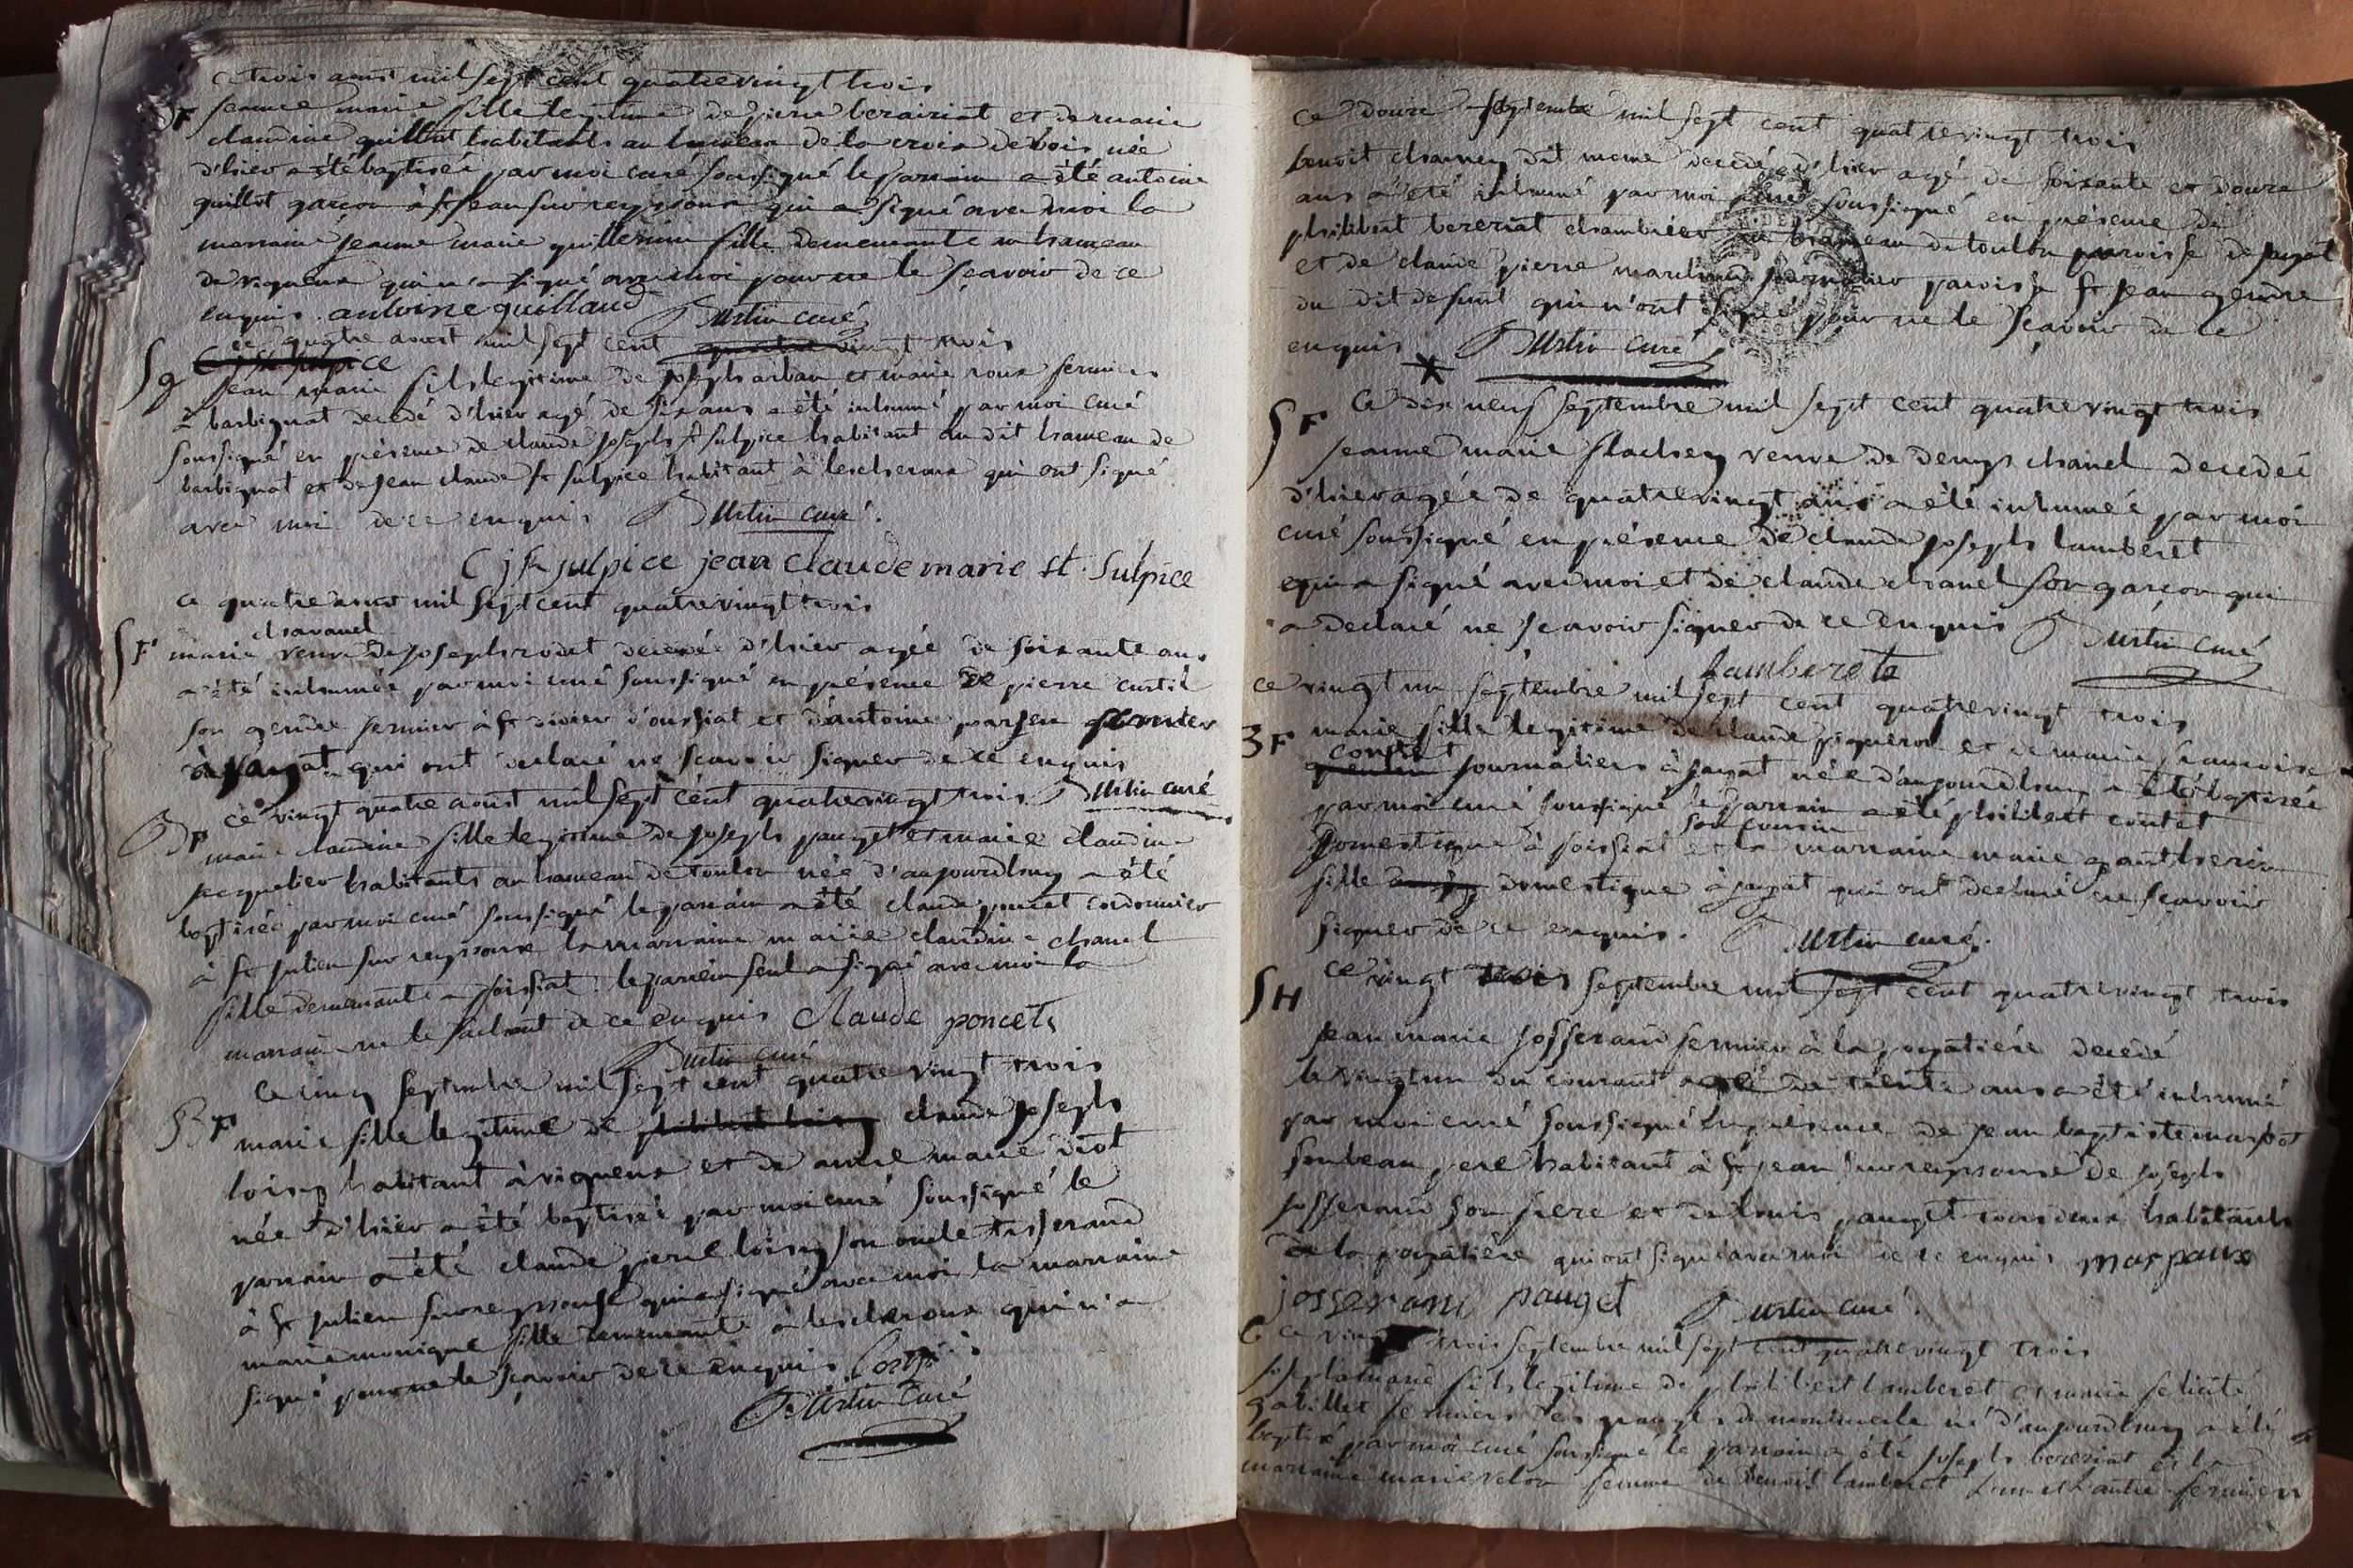 ce trois aout mil sept cent quatrevingt trois
BF jeanne marie fille legitime de pierre berairiat et de marie
claudine guillot habitants au hameau de la croix de bois née
d'hier a été baptisée par moi curé soussigné le parrain a été antoine
guillot garçon à st jean sur reyssouse qui a signé avec moi la
marraine jeanne marie guillermin fille demeurante au hameau
de vigneux qui n'a signé avec moi pour ne le sçavoir de ce
enquis antoine guillaud Durtin curé
ce quatre aout mil sept cent vingt trois
Sg jean marie fils legitime de joseph arban et marie roux fermiers
à barbignat decedé d'hier agé de six ans a été inhumé par moi curé
soussigné en présence de claude joseph st sulpice habitant au dit hameau de
barbignat et de jean claude st sulpice habitant à lescheroux qui ont signé
avec moi de ce enquis Durtin curé.
C j st sulpice jean claude marie st. Sulpice
ce quatre aout mil sept cent quatrevingt trois
chavanel
SF marie veuve de joseph rodet decedée d'hier agée de soixante ans
a été inhumée par moi curé soussigné en présence de pierre curtil
son gendre fermier à st didier d'oussiat et d'antoine
à jayat qui ont declaré ne sçavoir signer de ce enquis
ce vingt quatre aout mil sept cent quatrevingt trois Durtin curé
BF marie claudine fille legitime de joseph pauget et marie claudine
jacquelier habitants au hameau de toulon née d'aujourdhuy a été
baptisée par moi curé soussigné le parrain a été claude poncet cordonnier
à st julien sur reyssouse la marraine marie claudine chanel
fille demeurante a foissiat le parrein seul a signé avec moi la
marraine ne le sachant de ce enquis Claude poncets
Durtin curé
ce cinq septembre mil sept cent quatre vingt trois
BF marie fille legitime de claude joseph
loisy habitant à vigneux et de marie diot
née d'hier a été baptisée par moi curé soussigné le
parrain a été claude loisy son oncle tisserand
à st julien sur reyssouse qui a signé avec moi la marraine
marie monique fille demeurante à lescheroux qui n'a
signé pour ne le sçavoir de ce enquis
Durtin Curé
ce douze septembre mil sept cent quatrevingt trois
benoit charney dit decedé d'hier agé de soixante et douze
ans a été inhumé par moi curé soussigné en présence de
philibert bereriat au hameau de toulon paroisse de jayat
et de claude pierre journalier paroisse st jean gendre
du dit defunt qui n'ont signé pour ne le sçavoir de ce
enquis Durtin curé
SF Ce dix neuf septembre mil sept cent quatre vingt trois
jeanne marie flachey veuve de denys chanel decedée
d'hier agée de quatrevingt ans a été inhumée par moi
curé soussigné en présence de claude joseph lamberet
qui a signé avec moi et de claude chanel son garçon qui
a declaré ne sçavoir signer de ce enquis Durtin curé
Lamberets
ce vingt un septembre mil sept cent quatrevingt trois
BF marie fille legitime de claude pigueron et de marie françoise
contet journaliers à jayat née d'aujourdhuy a été baptisée
par moi curé soussigné le parrain a été philibert contet
son cousin
domestique à foissiat et la marraine marie
fille domestique à jayat qui ont declaré ne sçavoir
signer de ce enquis. Durtin curé.
SH ce vingt trois septembre mil sept cent quatrevingt trois
jean marie josserand fermier à la poyatiére decedé
le vingt un du courant agé de trente ans a été inhumé
par moi curé soussigné en présence de jean baptiste
son beau pere habitant à st jean sur reyssouse de joseph
josserand son frere et de louis pauget tous deux habitants
à la poyatière qui ont signé avec moi de ce enquis
josserand pauget Durtin curé.
ce vingt trois septembre mil sept cent quatre vingt trois
joseph marie fils legitime de philibert lamberet et marie felicité
gabillet fermiers né d'aujourdhuy a été
baptisé par moi curé soussigné le parrain a été joseph bereriat et la
marraine marie velon femme de benoit lamberet l'un et l'autre fermiers